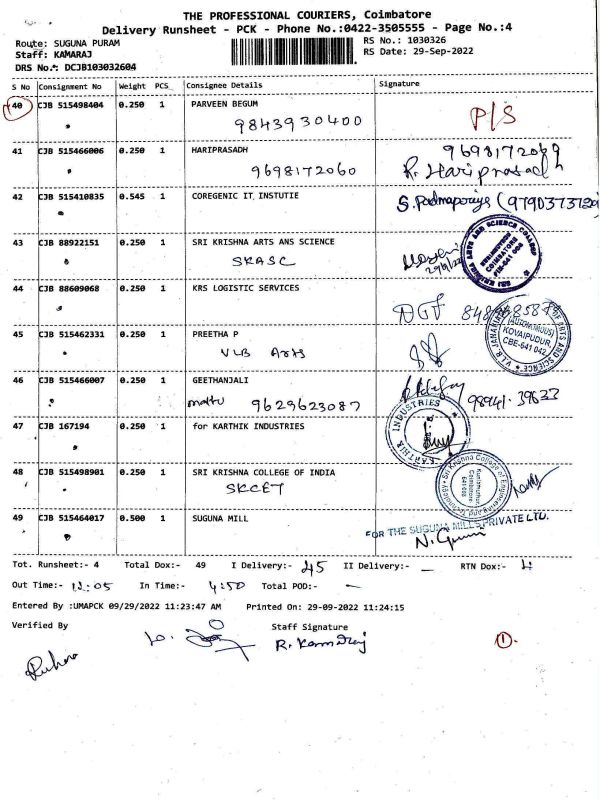 THE PROFESSIONAL COURIERS, Coimbatore
Delivery Runsheet - PCK - Phone No.:0422-3505555 - Page No.:4
Route: SUGUNA PURAM RS No.: 1030326
Staff: KAMARAJ RS Date: 29-Sep-2022
DRS No.: DCJB103032604
S No Consignment No Weight PCS Consignee Details Signature
40 CJB 515498404 0.250 1 PARVEEN BEGUM P/S
9843930400
41 CJB 515466006 0.250 1 HARIPRASADH 9698172069
9698172060 R. Hariprasadh
42 CJB 515410835 0.545 1 COREGENIC IT, INSTUTIE S. Padmapriya (9790373720
43 CJB 88922151 0.250 1 SRI KRISHNA ARTS ANS SCIENCE
SKASC 29/9/22
SRI KRISHNA ARTS AND SCIENCE COLLEGE
COIMBATORE
44 CJB 88609068 0.250 1 KRS LOGISTIC SERVICES
DGF
45 CJB 515462331 0.250 1 PREETHA P
VLB Arts
(AUTONOMOUS)
KOVAIPUDUR,
CBE-641 042
46 CJB 515466007 0.250 1 GEETHANJALI
9629623087
47 CJB 167194 0.250 1 for KARTHIK INDUSTRIES
KARTHIK INDUSTRIES
48 CJB 515498901 0.250 1 SRI KRISHNA COLLEGE OF INDIA
SKCET
Sri Krishna College of Engineering and Technology
Kuniamuthur,
Coimbatore
641008
49 CJB 515464017 0.500 1 SUGUNA MILL
FOR THE SUGUNA MILLS PRIVATE LTD.
Tot. Runsheet:- 4 Total Dox:- 49 I Delivery:- 45 II Delivery:- – RTN Dox:- 4
Out Time:- 12:05 In Time:- 4:50 Total POD:- –
Entered By :UMAPCK 09/29/2022 11:23:47 AM Printed On: 29-09-2022 11:24:15
Verified By Staff Signature
R. Kamaraj
1